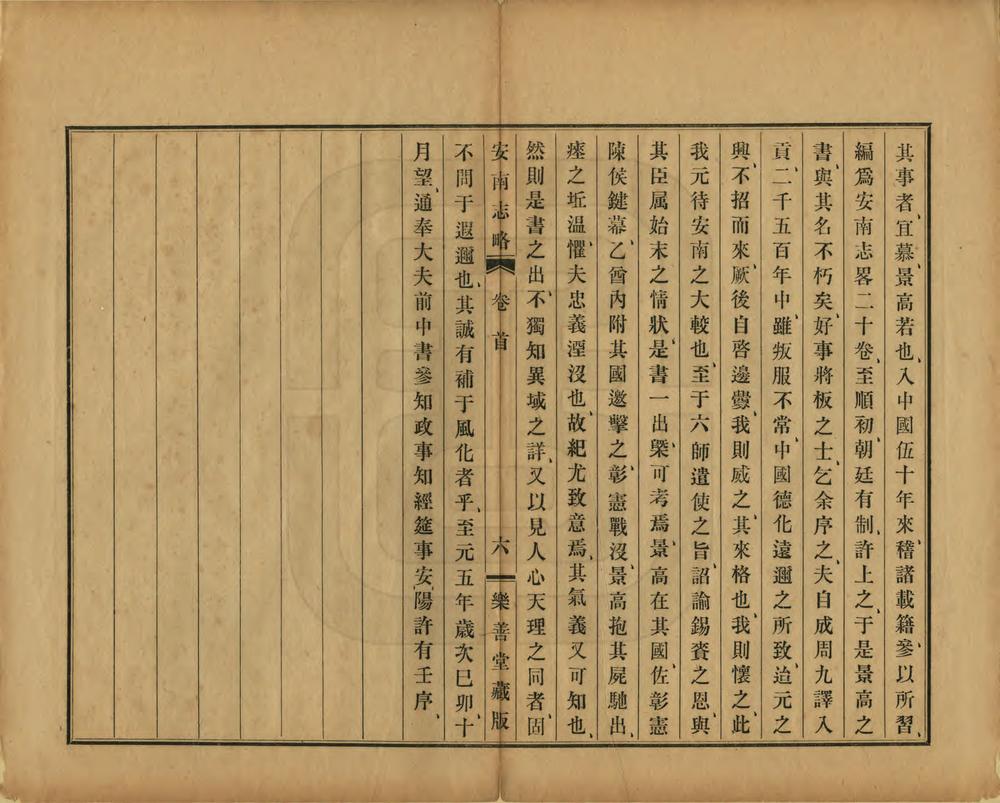 其事者、宜慕景高若也、入中國伍十年來、稽諸載籍、參以所習、
編爲安南志畧二十卷、至順初、朝廷有制、許上之、于是景高之
書、與其名不朽矣、好事將板之士、乞余序之、夫自成周九譯入
貢、二千五百年中、雖叛服不常、中國德化遠邇之所致、迨元之
興、不招而來、厥後自啓邊釁、我則威之、其來格也、我則懷之、此
我元待安南之大較也、至于六師遣使之旨、詔諭錫賚之恩、與
其臣属始末之情狀、是書一出、槩可考焉、景高在其國、佐彰憲
陳侯鍵幕、乙酉內附、其國邀擊之、彰憲戰沒、景高抱其屍馳出、
瘞之坵温、懼夫忠義湮沒也、故紀尤致意焉、其氣義又可知也、
然則是書之出、不獨知異域之詳、又以見人心天理之同者、固
安南志略 卷首 六 樂善堂藏版
不間于遐邇也、其誠有補于風化者乎、至元五年歲次巳卯、十
月望、通奉大夫前中書參知政事知經筵事安陽許有壬序、